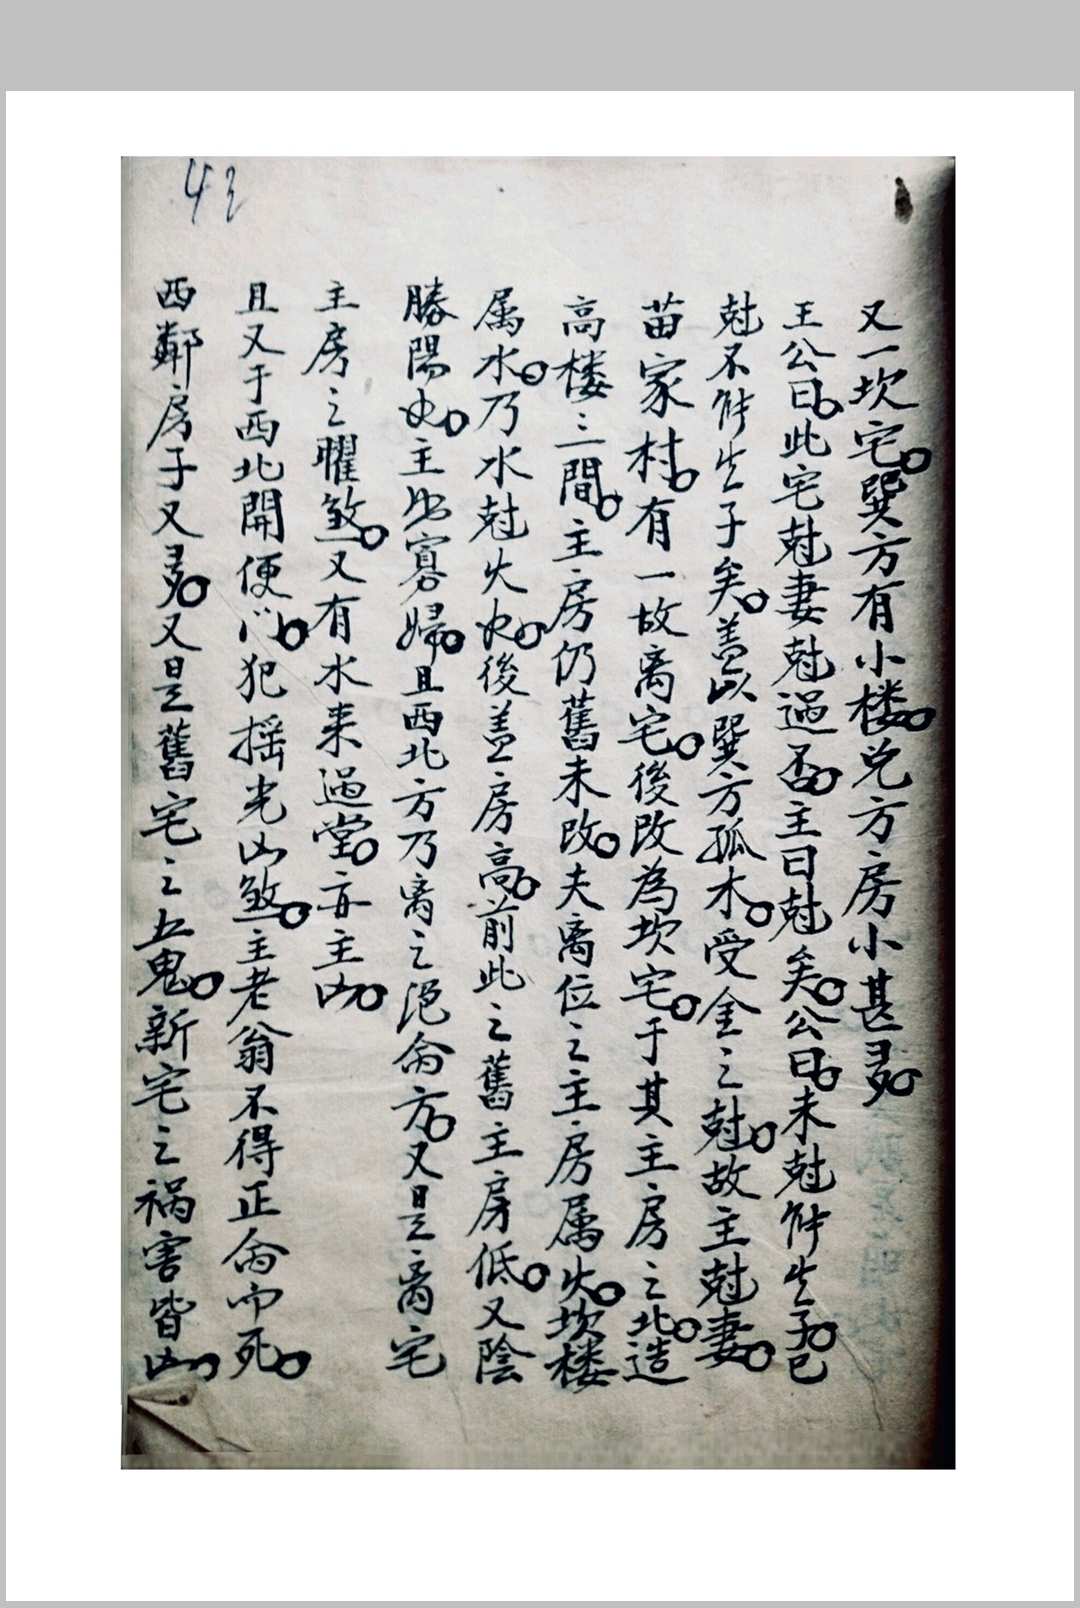 43
又一坎宅。巽方有小楼。兑方房小甚多。
王公曰。此宅尅妻尅過否。主曰尅矣。公曰。未尅你生子。已
尅不你生子矣。盖以巽方孤木。受金之尅。故主尅妻。
苗家村。有一故离宅。後改為坎宅。于其主房之北。造
高楼三間。主房仍舊未改。夫离位之主房属火。坎楼
属水。乃水尅火也。後盖房高。前此之舊主房低。又陰
勝陽也。主出寡婦。且西北方乃离之绝命方。又是离宅
主房之曜煞。又有水来過堂。亦主凶。
且又于西北開便门。犯摇光凶煞。主老翁不得正命而死。
西鄰房子又多。又是舊宅之五鬼。新宅之禍害皆凶。